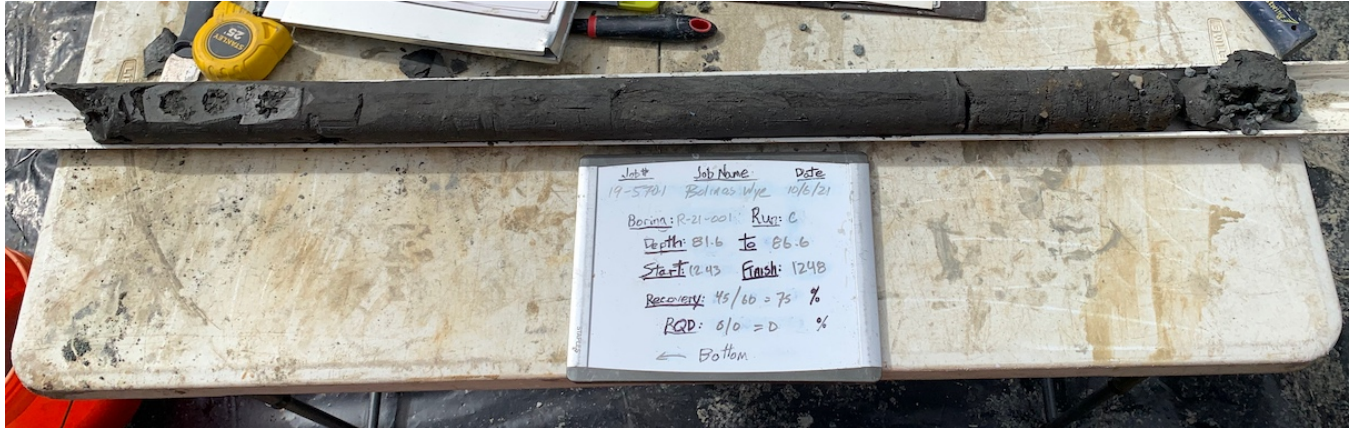 STANLEY
25'
Job# Job Name: Date
19-570.1 Bolinas Wye 10/6/21
Boring: R-21-001 Run: C
Depth: 81.6 to 86.6
Start: 1243 Finish: 1248
Recovery: 45/60 = 75 %
RQD: 0/0 = 0 %
← Bottom